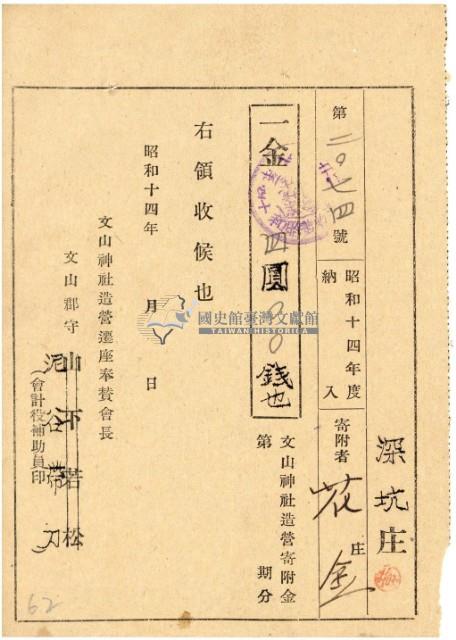 深坑庄
第二〇七四號
昭和十四年度
納入
寄附者
庄
花金
一金四圓〇〇錢也
文山神社造營寄附金
第 期分
右領收候也
昭和十四年 月 日
文山神社造營遷座奉賛會長
文山郡守 山下若松
(會計役補助員印)
國史館臺灣文獻館
TAIWAN HISTORICA
62